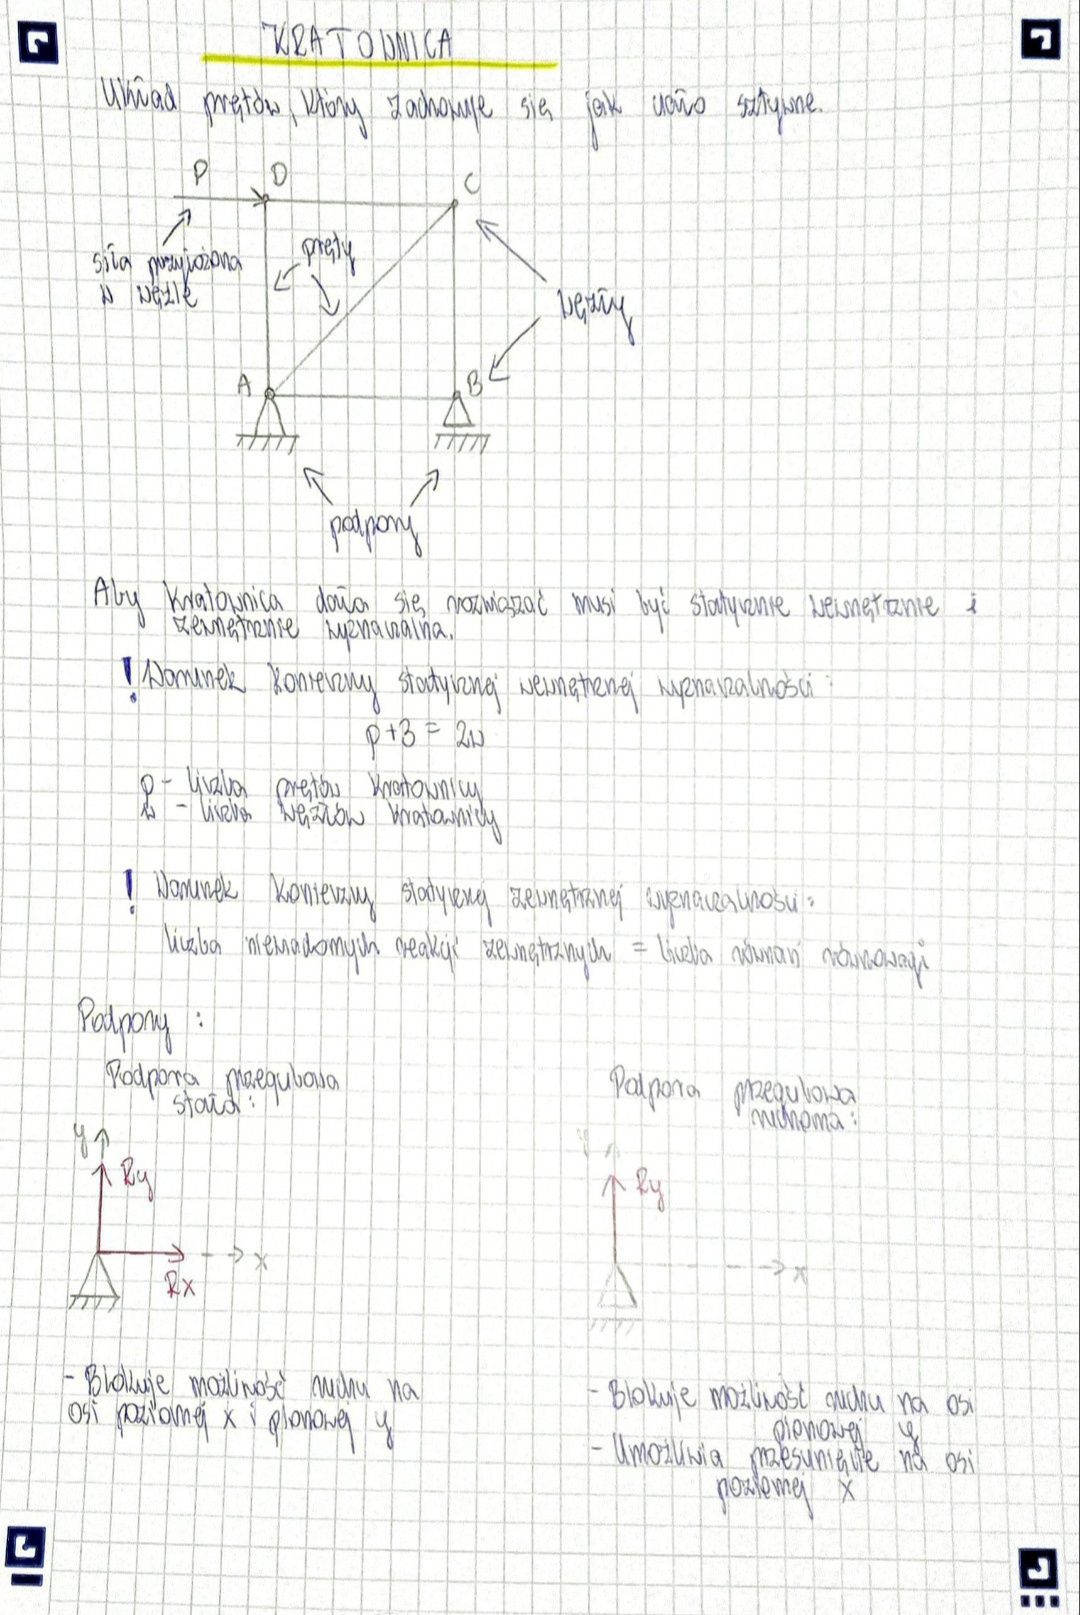 KRATOWNICA
Układ prętów, który zachowuje się jak ciało sztywne.
P D C
siła przyłożona
w węźle
pręty
węzły
A B
podpory
Aby kratownica dała się rozwiązać musi być statycznie wewnętrznie i
zewnętrznie wyznaczalna.
! Warunek konieczny statycznej wewnętrznej wyznaczalności:
p+3 = 2w
p - liczba prętów kratownicy
w - liczba węzłów kratownicy
! Warunek konieczny statycznej zewnętrznej wyznaczalności:
liczba niewiadomych reakcji zewnętrznych = liczba równań równowagi
Podpory :
Podpora przegubowa
stała:
Podpora przegubowa
ruchoma:
y Ry
x
Rx
y Ry
x
- Blokuje możliwość ruchu na
osi poziomej x i pionowej y
- Blokuje możliwość ruchu na osi
pionowej y
- Umożliwia przesunięcie na osi
poziomej x